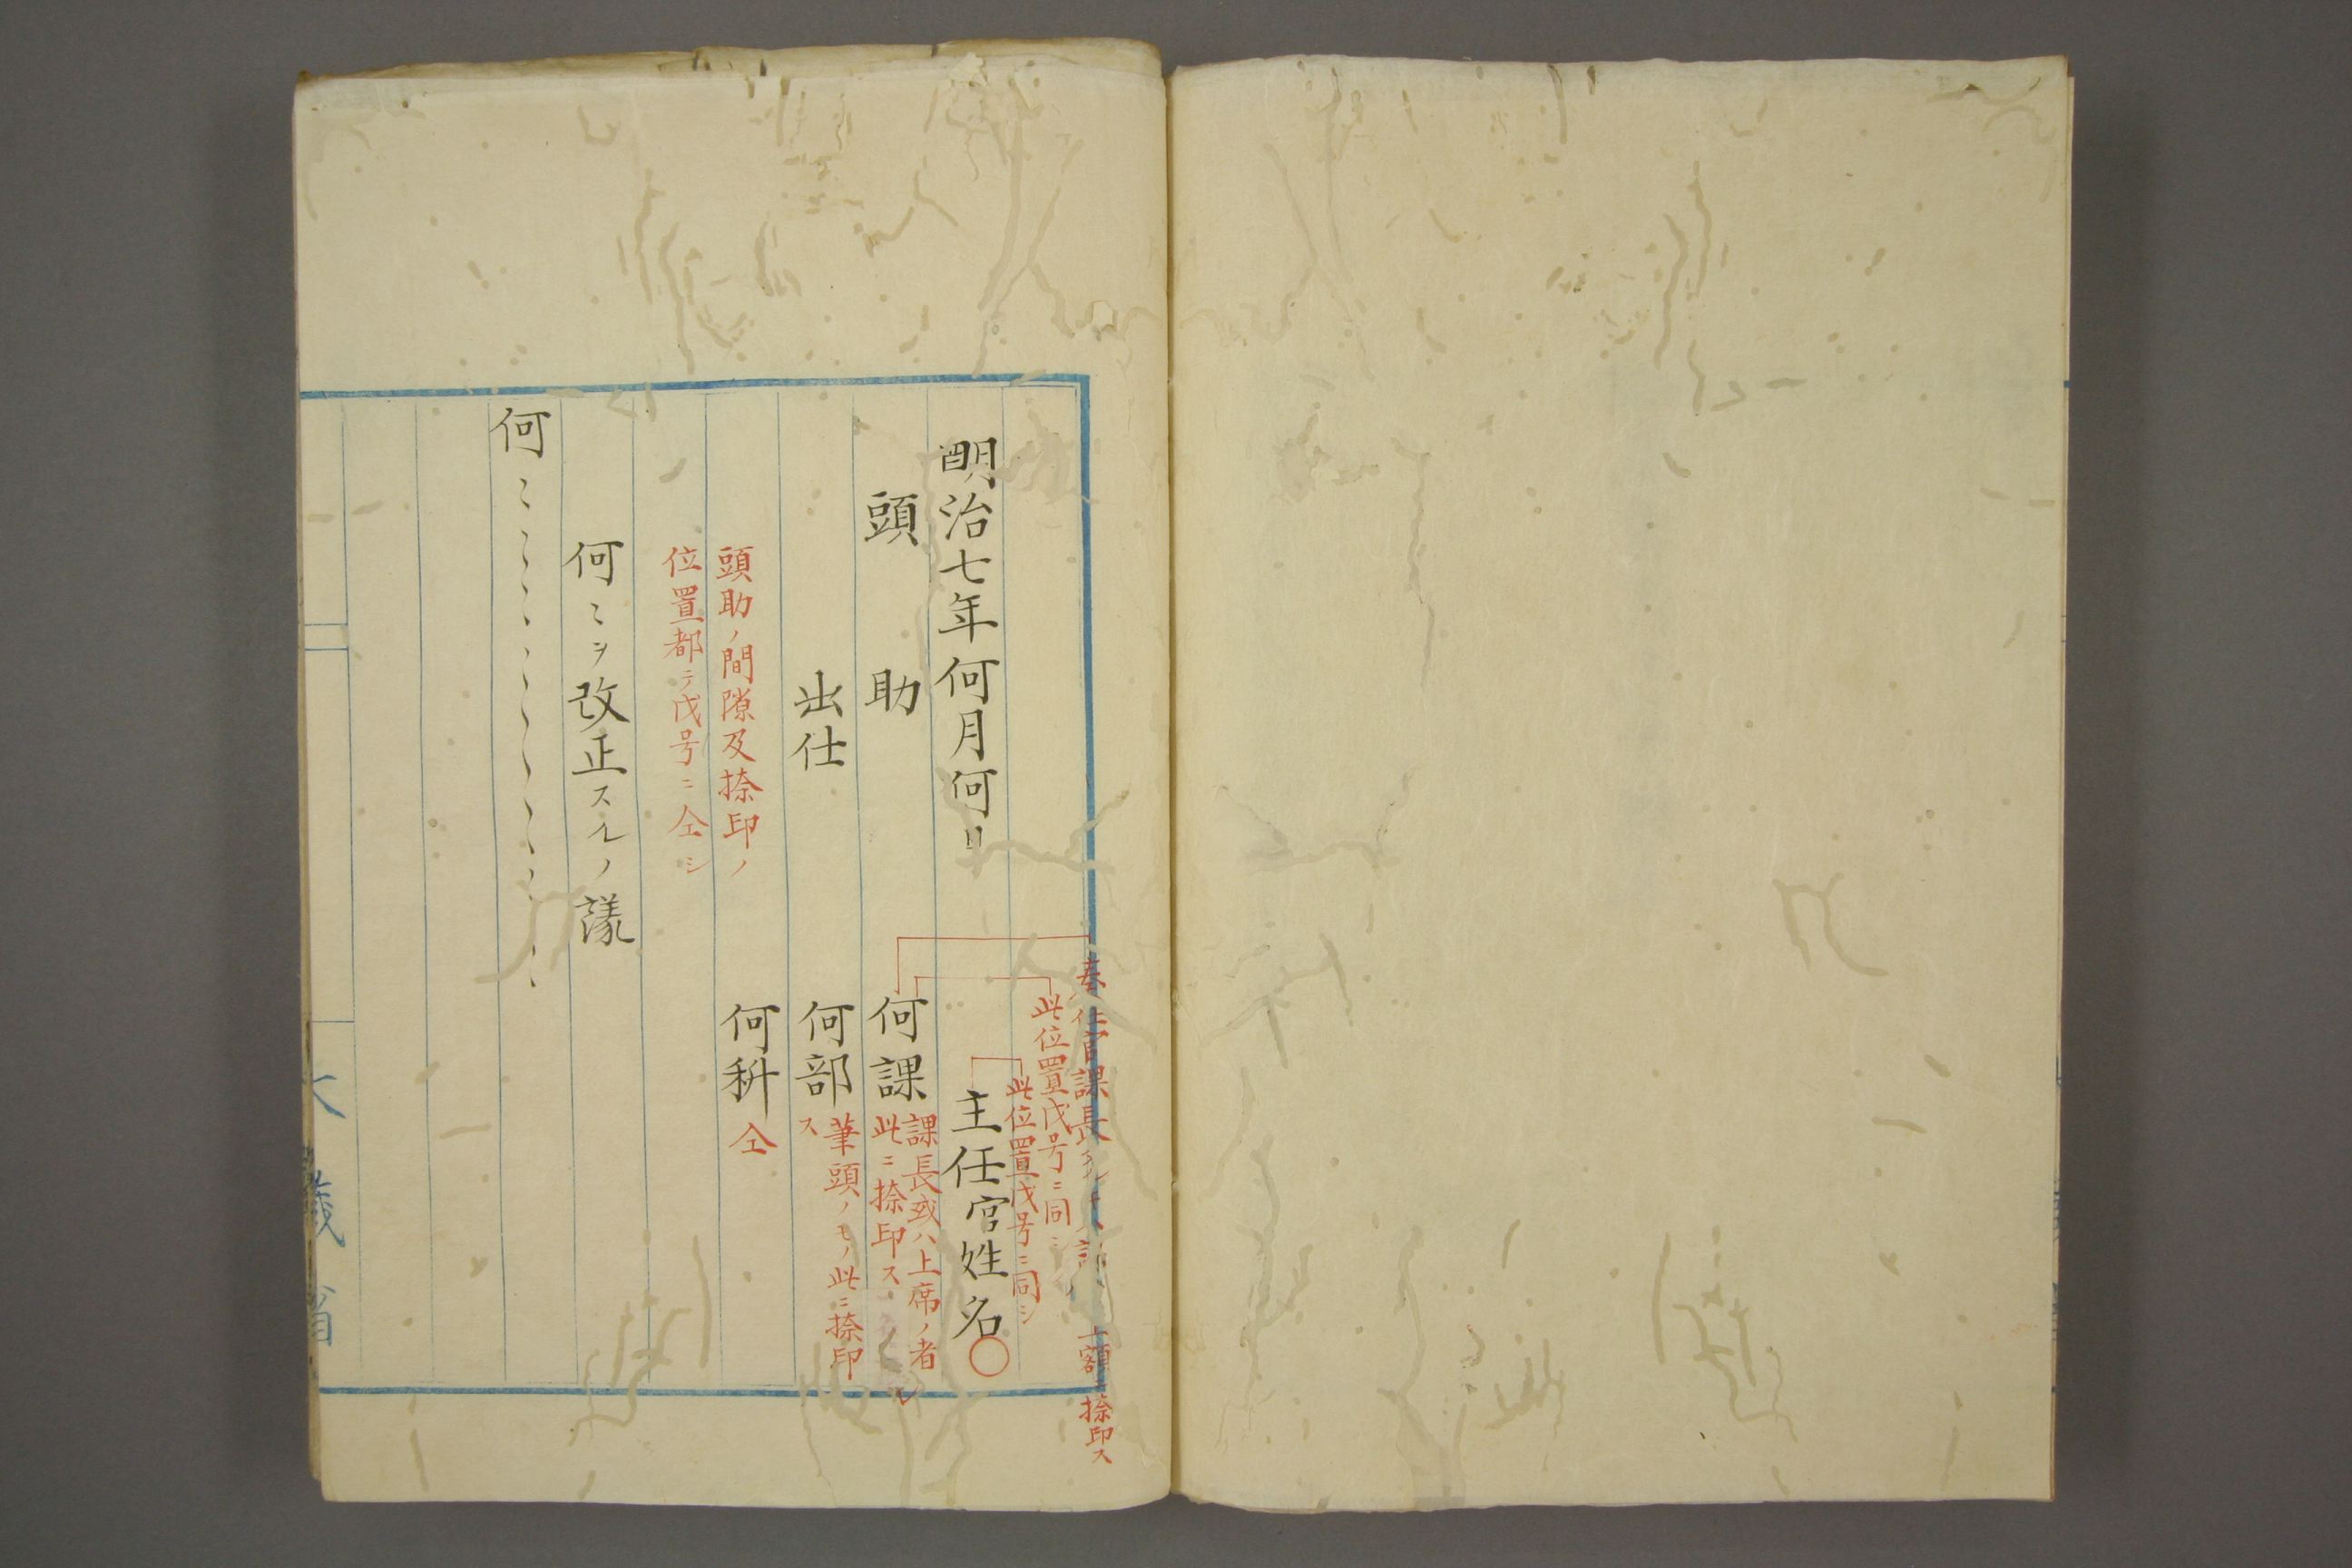 奏任官課長タルキハ課ノ上額ニ捺印ス
此位置戊号ニ同シ
此位置戊号ニ同シ
明治七年何月何日
主任官姓名〇
頭　助
何課
課長或ハ上席ノ者
此ニ捺印ス
出仕
何部
筆頭ノモノ此ニ捺印
ス
頭助ノ間隙及捺印ノ
位置都テ戊号ニ仝シ
何科
仝
何〻ヲ改正スルノ議
何〻〻〻〻〻〻〻〻〻
大藏省